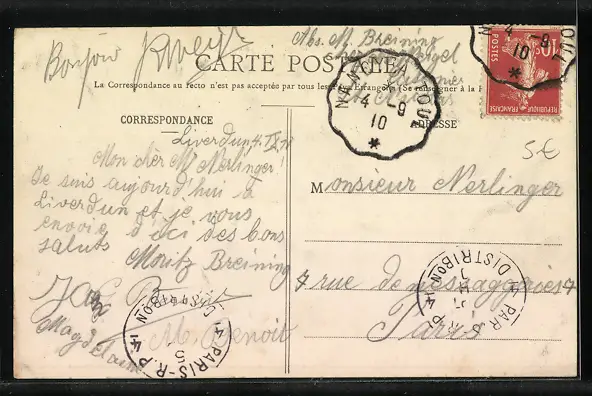 Bonjour
Abs. M. Breining
CARTE POSTALE
La Correspondance au recto n'est pas acceptée par tous les Pays Etrangers (Se renseigner à la
CORRESPONDANCE
ADRESSE
4 - 9
10
*
4 - 9
10
*
10c
POSTES
REPUBLIQUE FRANÇAISE
5€
Liverdun, 4. IX.
Mon cher M. Nerlinger!
Je suis aujourd'hui à
Liverdun et je vous
envoie d'ici des bons
saluts
Moritz Breining
Magdelaine
M. Benoit
Monsieur Nerlinger
7 rue de messageries 7
Paris
PARIS-R.P
DISTRIBON
5
PAR R.P
DISTRIBON